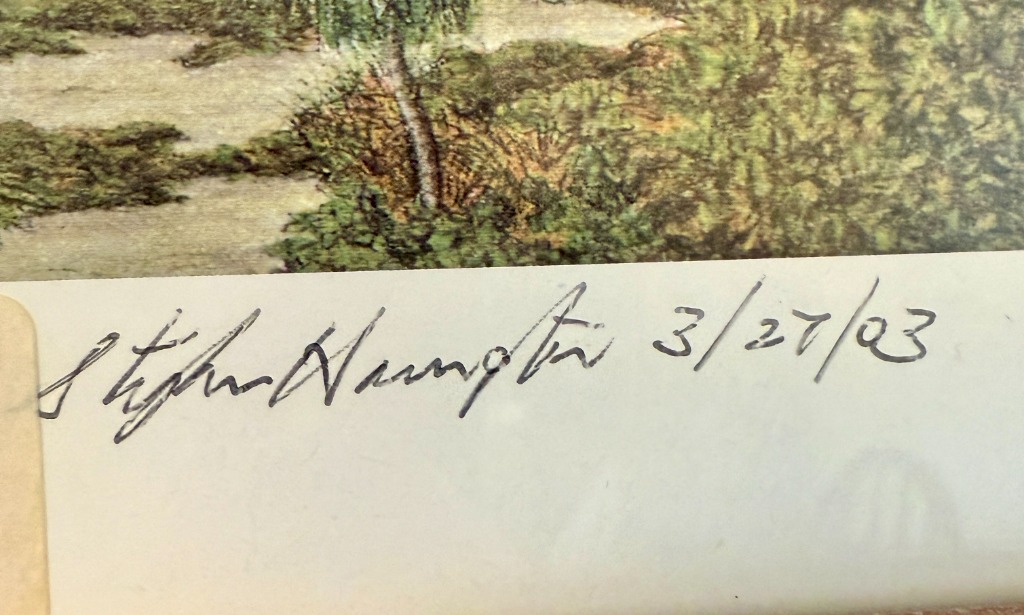 Stephen Harrington 3/27/03